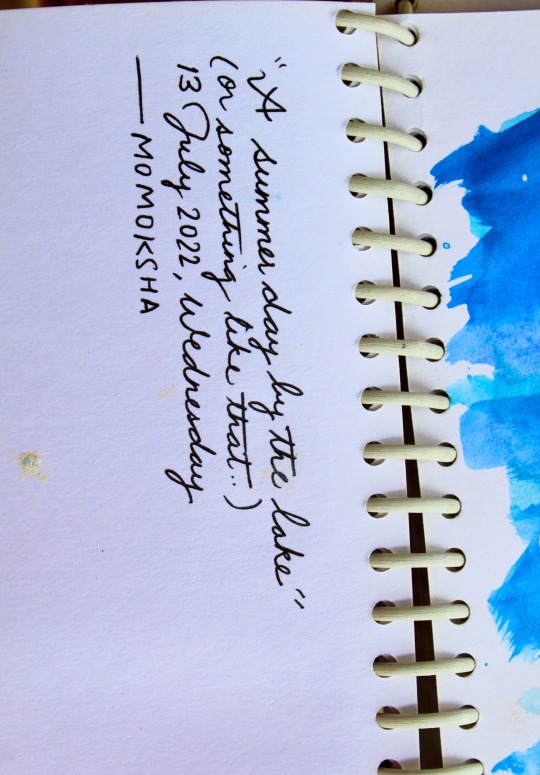 "A summer day by the lake"
(or something like that..)
13 July 2022, Wednesday
— MOMOKSHA